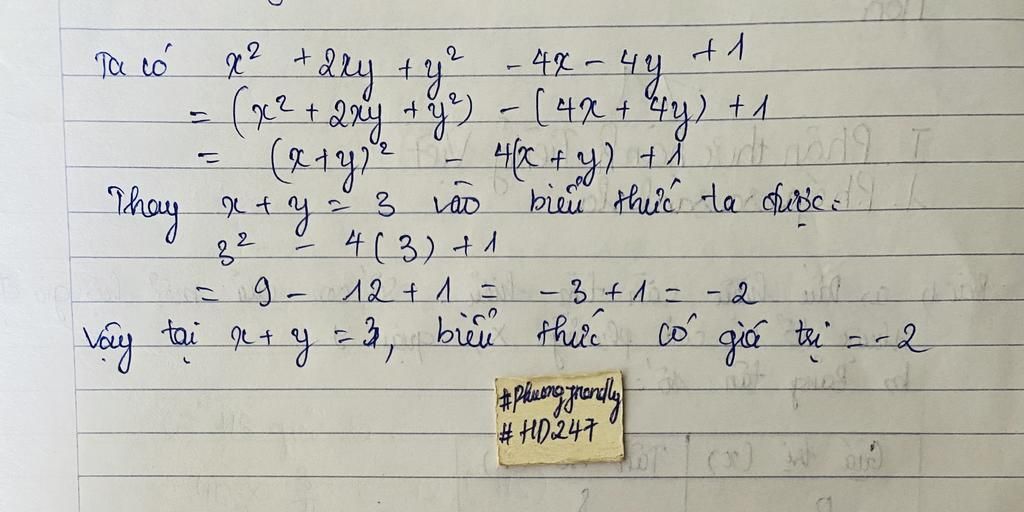 Ta có x² + 2xy + y² - 4x - 4y + 1
= (x² + 2xy + y²) - (4x + 4y) + 1
= (x+y)² - 4(x + y) + 1
Thay x + y = 3 vào biểu thức ta được:
3² - 4(3) + 1
= 9 - 12 + 1 = -3 + 1 = -2
Vậy tại x + y = 3, biểu thức có giá trị = -2
#Phuongfrendly
#HD247